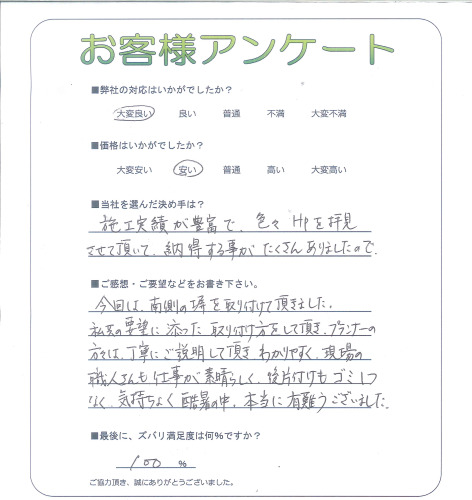 お客様アンケート
■弊社の対応はいかがでしたか？
大変良い　良い　普通　不満　大変不満
■価格はいかがでしたか？
大変安い　安い　普通　高い　大変高い
■当社を選んだ決め手は？
施工実績が豊富で、色々HPを拝見
させて頂いて、納得する事がたくさんありましたので。
■ご感想・ご要望などをお書き下さい。
今回は、南側の塀を取り付けて頂きました。
私共の要望に添った取り付け方をして頂き、プランナーの
方々は、丁寧にご説明して頂きわかりやすく、現場の
職人さんも仕事が素晴らしく、後片付けもゴミ1つ
なく、気持ちよく酷暑の中、本当に有難うございました。
■最後に、ズバリ満足度は何%ですか？
100 %
ご協力頂き、誠にありがとうございました。